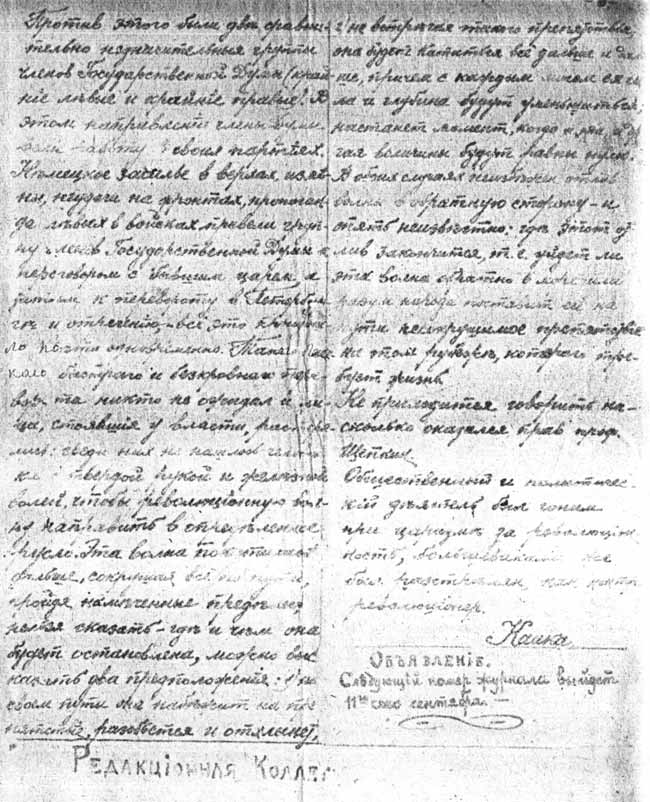 Против этого были два сравни-
тельно незначительныя группы
членов Государственной Думы (край-
ніе лѣвые и крайніе правые). В
этом направленіи члены Думы
вели работу в своих партіях.
Нѣмецкое засилье в верхах, измѣ-
на, неудачи на фронтах, пропаган-
да лѣвых в войсках привели груп-
пу членов Государственной Думы к
переговорам с бывшим царем, а
затѣм к перевороту в Петербур-
гѣ и отреченію – всѣ это
почти одновременно. Такого
быстраго и безкровнаго пере-
ворота никто не ожидал и ли-
ца, стоявшія у власти,
лись: среди них не нашлось челов-
ка с твердой рукой и желѣзной
волей, чтобы революціонную вол-
ну направить в опредѣленное
русло. Эта волна покатилась
дальше, сокрушая всё по пути,
пройдя намѣченные предѣлы,
нельзя сказать – гдѣ и чѣм она
будет остановлена, можно выс-
казать два предположенія:
своем пути она набѣжит на пре-
пятствіе, разобьется и отхлынет,
не встрѣчая такого препятствія,
она будет катиться всё дальше и даль-
ше, причем с каждым мигом ея си-
ла и глубина будут уменьшаться,
настанет момент, когда и та и дру-
гая величины будут равны нулю.
В обоих случаях неизбѣжен отлив
волны в обратную сторону – и
опять неизвѣстно: гдѣ этот от-
лив закончится, т. е. уйдет ли
эта волна обратно в море или
разум народа поставит ей на
пути несокрушимое препятствіе
на этом рубежѣ, котораго тре-
бует жизнь.
Не приходится говорить на-
сколько оказался прав проф.
Щепкин.
Общественный и политичес-
кій дѣятель был гоним
при царизмѣ за революціон-
ность, большевиками же
был разстрѣлян, как контр-
революціонер.
Объявленіе.
Слѣдующій номер журнала выйдет
11го сего сентября.
Редакціонная Коллег